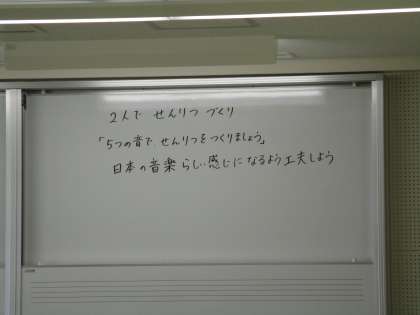 2人で せんりつ づくり
「5つの音で せんりつをつくりましょう。」
日本の音楽らしい感じになるよう工夫しよう